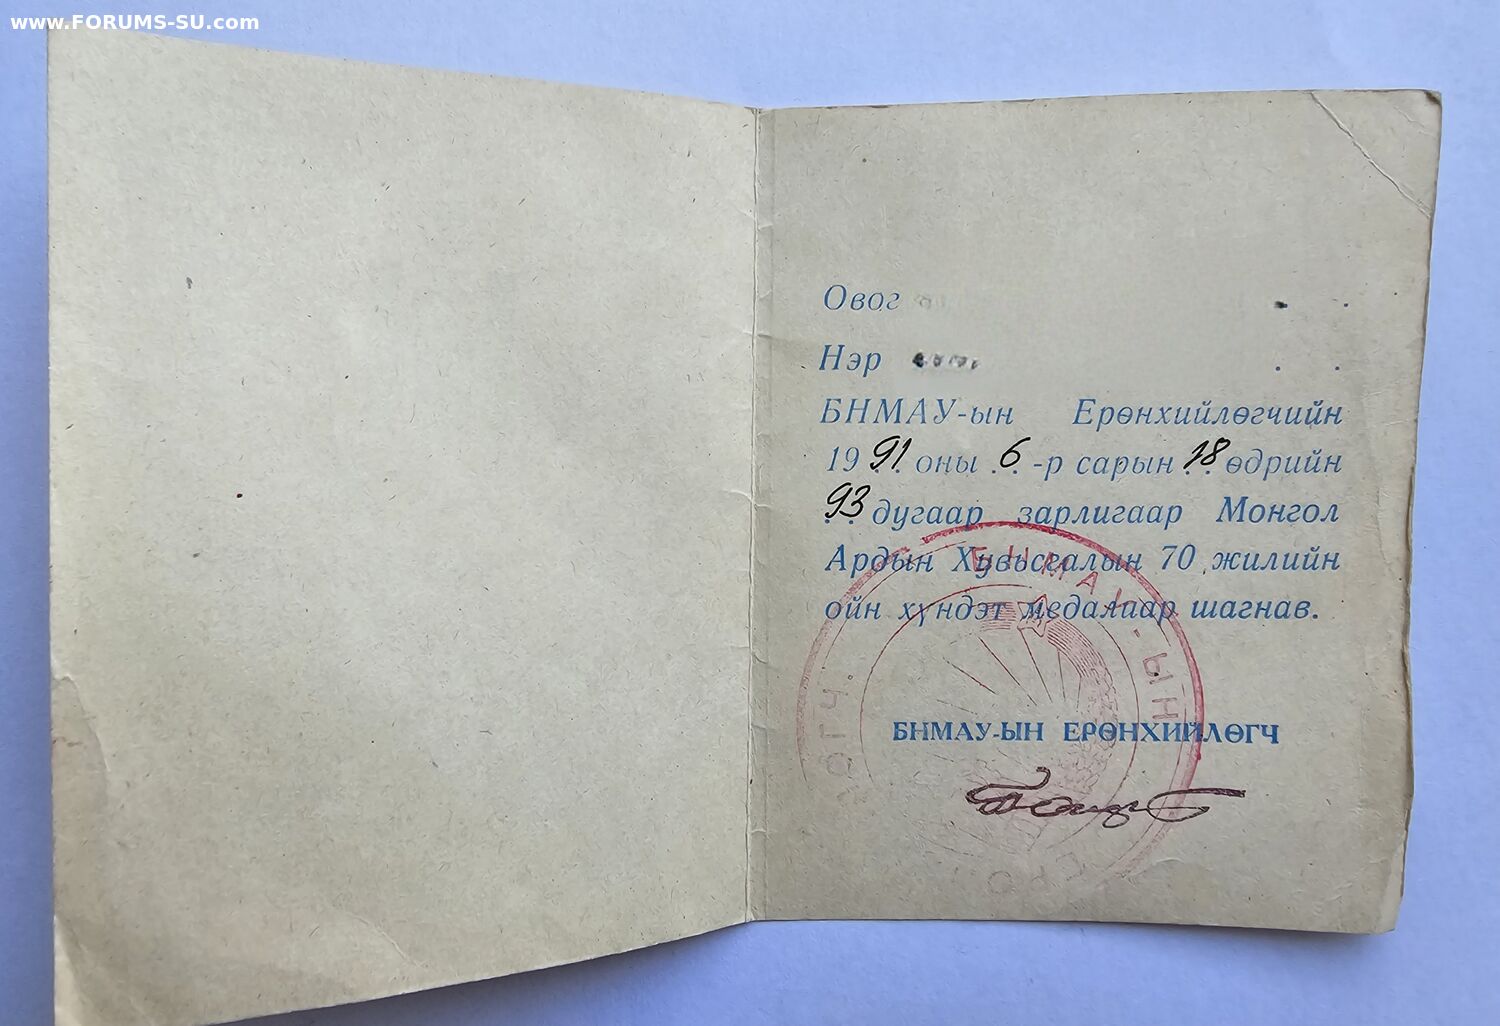 www.FORUMS-SU.com
Овог
Нэр
БНМАУ-ын Ерөнхийлөгчийн
1991 оны 6-р сарын 18 өдрийн
93 дугаар зарлигаар Монгол
Ардын Хувьсгалын 70 жилийн
ойн хүндэт медалаар шагнав.
БНМАУ-ЫН ЕРӨНХИЙЛӨГЧ
БНМАУ-ЫН